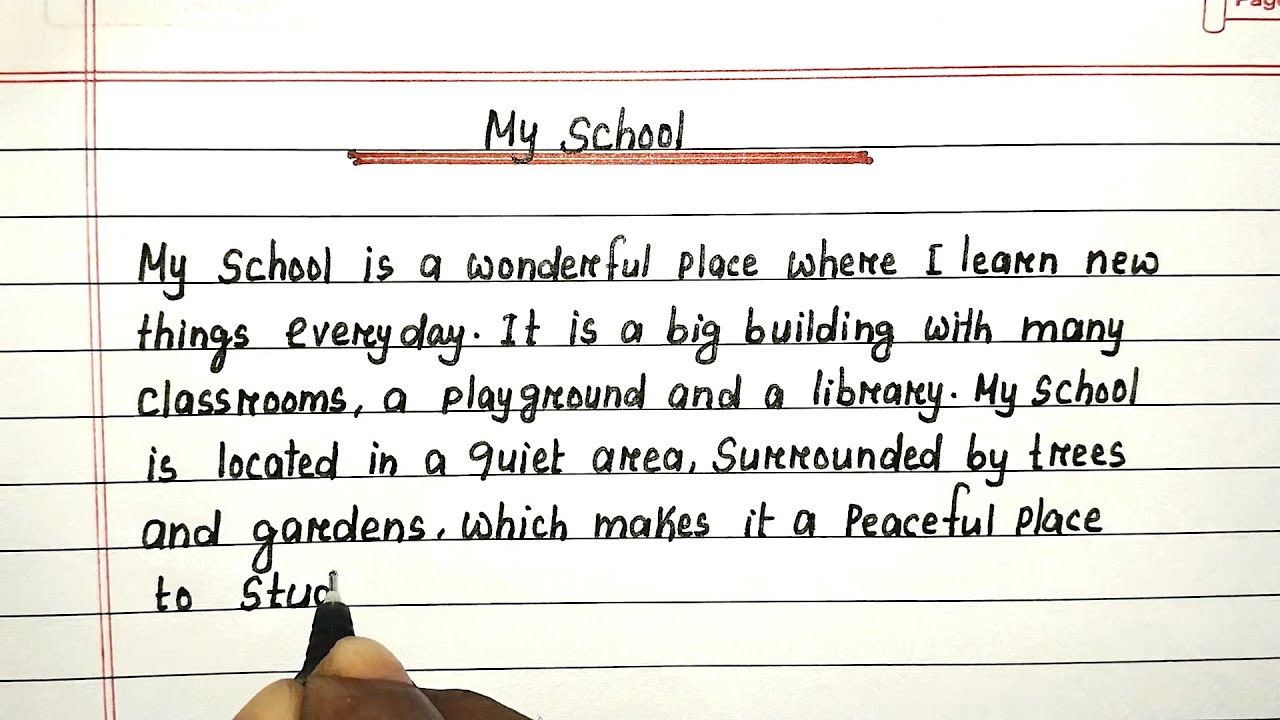 Page
My School
My School is a wonderful place where I learn new
things everyday. It is a big building with many
classrooms, a playground and a library. My School
is located in a quiet area, Surrounded by trees
and gardens, which makes it a Peaceful place
to Stud